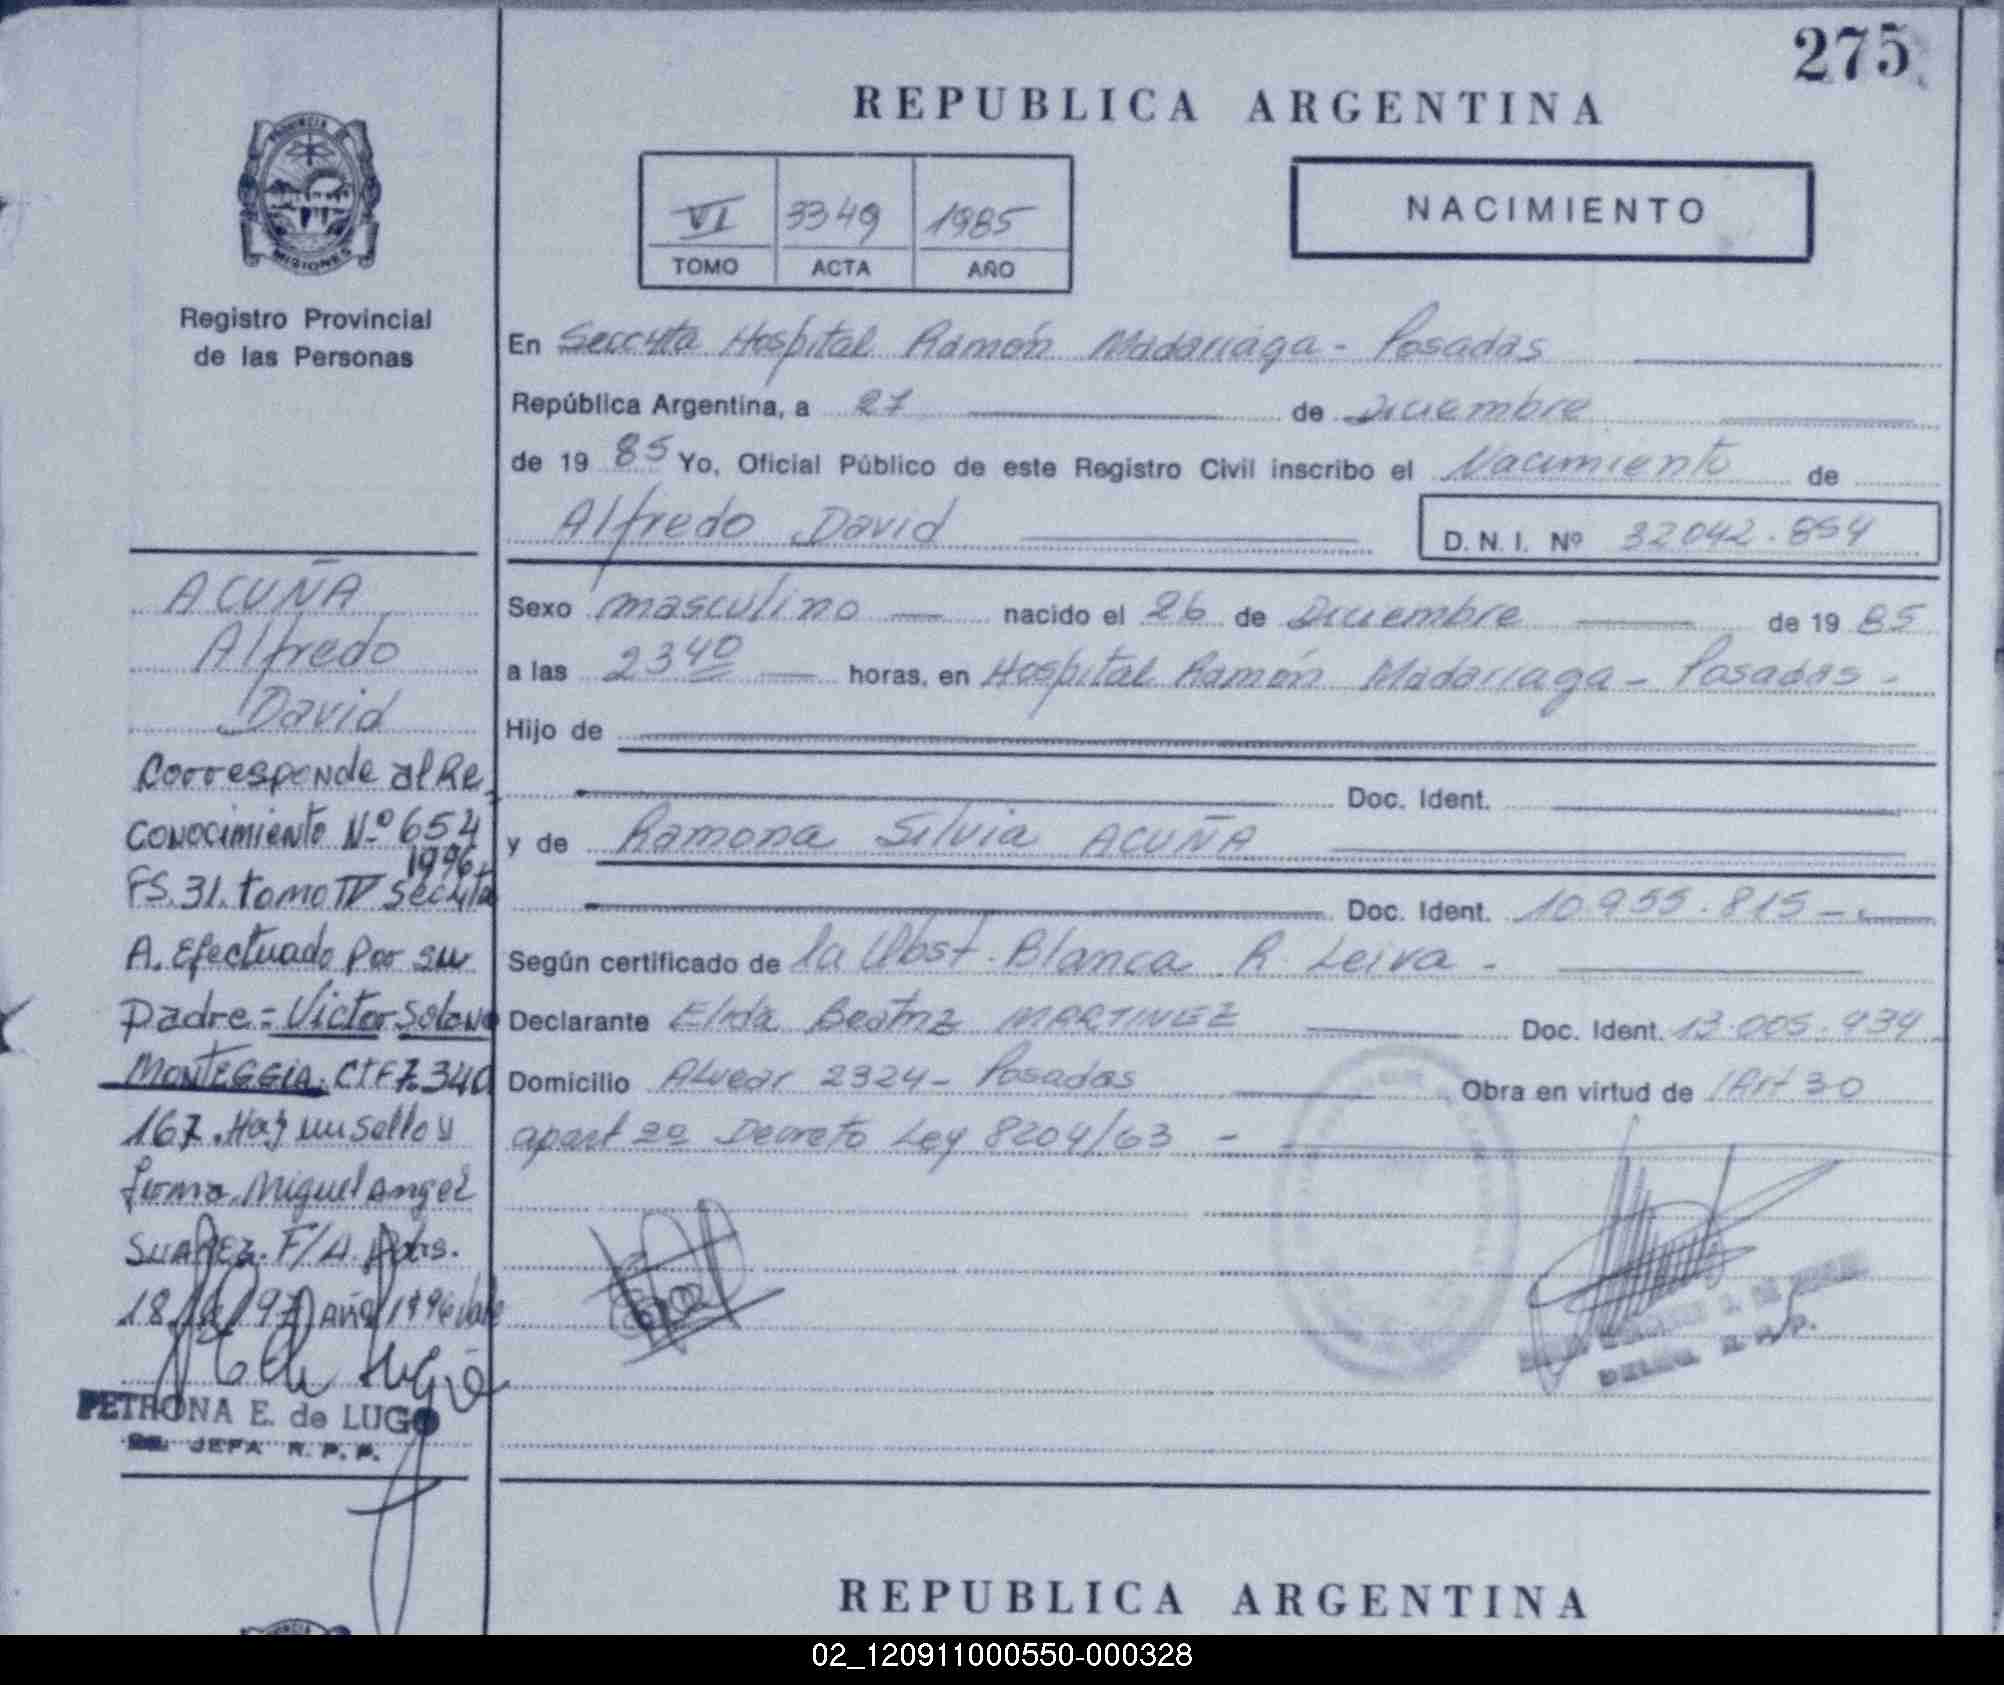 275
REPUBLICA ARGENTINA
PROVINCIA DE
MISIONES
Registro Provincial
de las Personas
VI 3349 1985
TOMO ACTA AÑO
NACIMIENTO
En Secc 4ta Hospital Ramón Madariaga - Posadas
República Argentina, a 27 de Diciembre
de 19 85 Yo, Oficial Público de este Registro Civil inscribo el Nacimiento de
Alfredo David D. N. I. Nº 32042.854
Sexo masculino nacido el 26 de Diciembre de 19 85
a las 23 40 horas, en Hospital Ramón Madariaga - Posadas -
Hijo de
Doc. Ident.
y de Ramona Silvia ACUÑA
Doc. Ident. 10.955.815 -
Según certificado de la Obst. Blanca R. Leiva -
Declarante Elida Beatriz MARTINEZ Doc. Ident. 13.005.939
Domicilio Alvear 2324 - Posadas Obra en virtud de Art 30
apart 2º Decreto Ley 8204/63 -
ACUÑA
Alfredo
David
Corresponde al Re
conocimiento Nº 654
1996
FS. 31. tomo IV Sec 4ta
A. Efectuado Por su
padre = Victor Solano
MONTEGGIA. CIF 7.340
167. Hay un sello y
firma. Miguel Angel
SUAREZ. F/A. Pdas.
18 97 Año 1996 vale
PETRONA E. de LUGO
JEFA R. P. P.
R. P. P.
REPUBLICA ARGENTINA
02_120911000550-000328